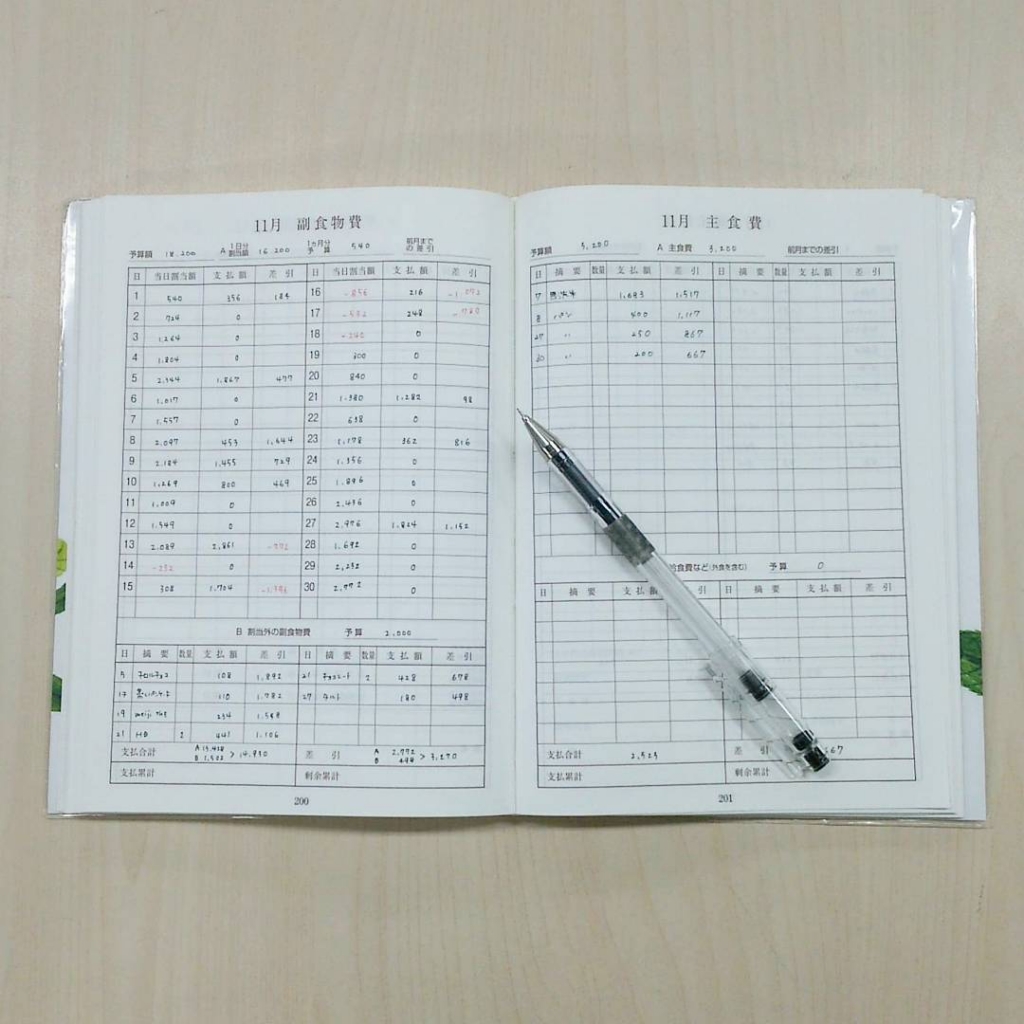 11月 副食物費
予算額 18,200 A 1日分割当額 16,200 1ヵ月分予算 540 前月までの差引
日 当日割当額 支払額 差引 日 当日割当額 支払額 差引
1 540 356 184 16 -856 216 -1,072
2 724 0 17 -532 248 -780
3 1,264 0 18 -240 0
4 1,804 0 19 300 0
5 2,344 1,867 477 20 840 0
6 1,017 0 21 1,380 1,282 98
7 1,557 0 22 638 0
8 2,097 453 1,644 23 1,178 362 816
9 2,184 1,455 729 24 1,356 0
10 1,269 800 469 25 1,896 0
11 1,009 0 26 2,436 0
12 1,549 0 27 2,976 1,824 1,152
13 2,089 2,861 -772 28 1,692 0
14 -232 0 29 2,232 0
15 308 1,704 -1,396 30 2,772 0
B 割当外の副食物費 予算 2,000
日 摘要 数量 支払額 差引 日 摘要 数量 支払額 差引
5 チロルチョコ 108 1,892 21 チョコレート 2 428 678
17 110 1,782 27 タルト 180 498
19 meiji THE 234 1,548
21 HD 2 441 1,106
支払合計 A 13,428 B 1,502 > 14,930 差引 A 2,772 B 498 > 3,270
支払累計 剰余累計
200
11月 主食費
予算額 3,200 A 主食費 3,200 前月までの差引
日 摘要 数量 支払額 差引 日 摘要 数量 支払額 差引
7 無洗米 1,683 1,517
8 パン 400 1,117
27 〃 250 867
30 〃 200 667
給食費など(外食を含む) 予算 0
日 摘要 支払額 差引 日 摘要 支払額 差引
支払合計 2,533 差引 667
支払累計 剰余累計
201